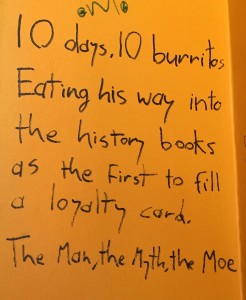 10 days, 10 burritos
Eating his way into
the history books
as the first to fill
a loyalty card.
The Man, the Myth, the Moe